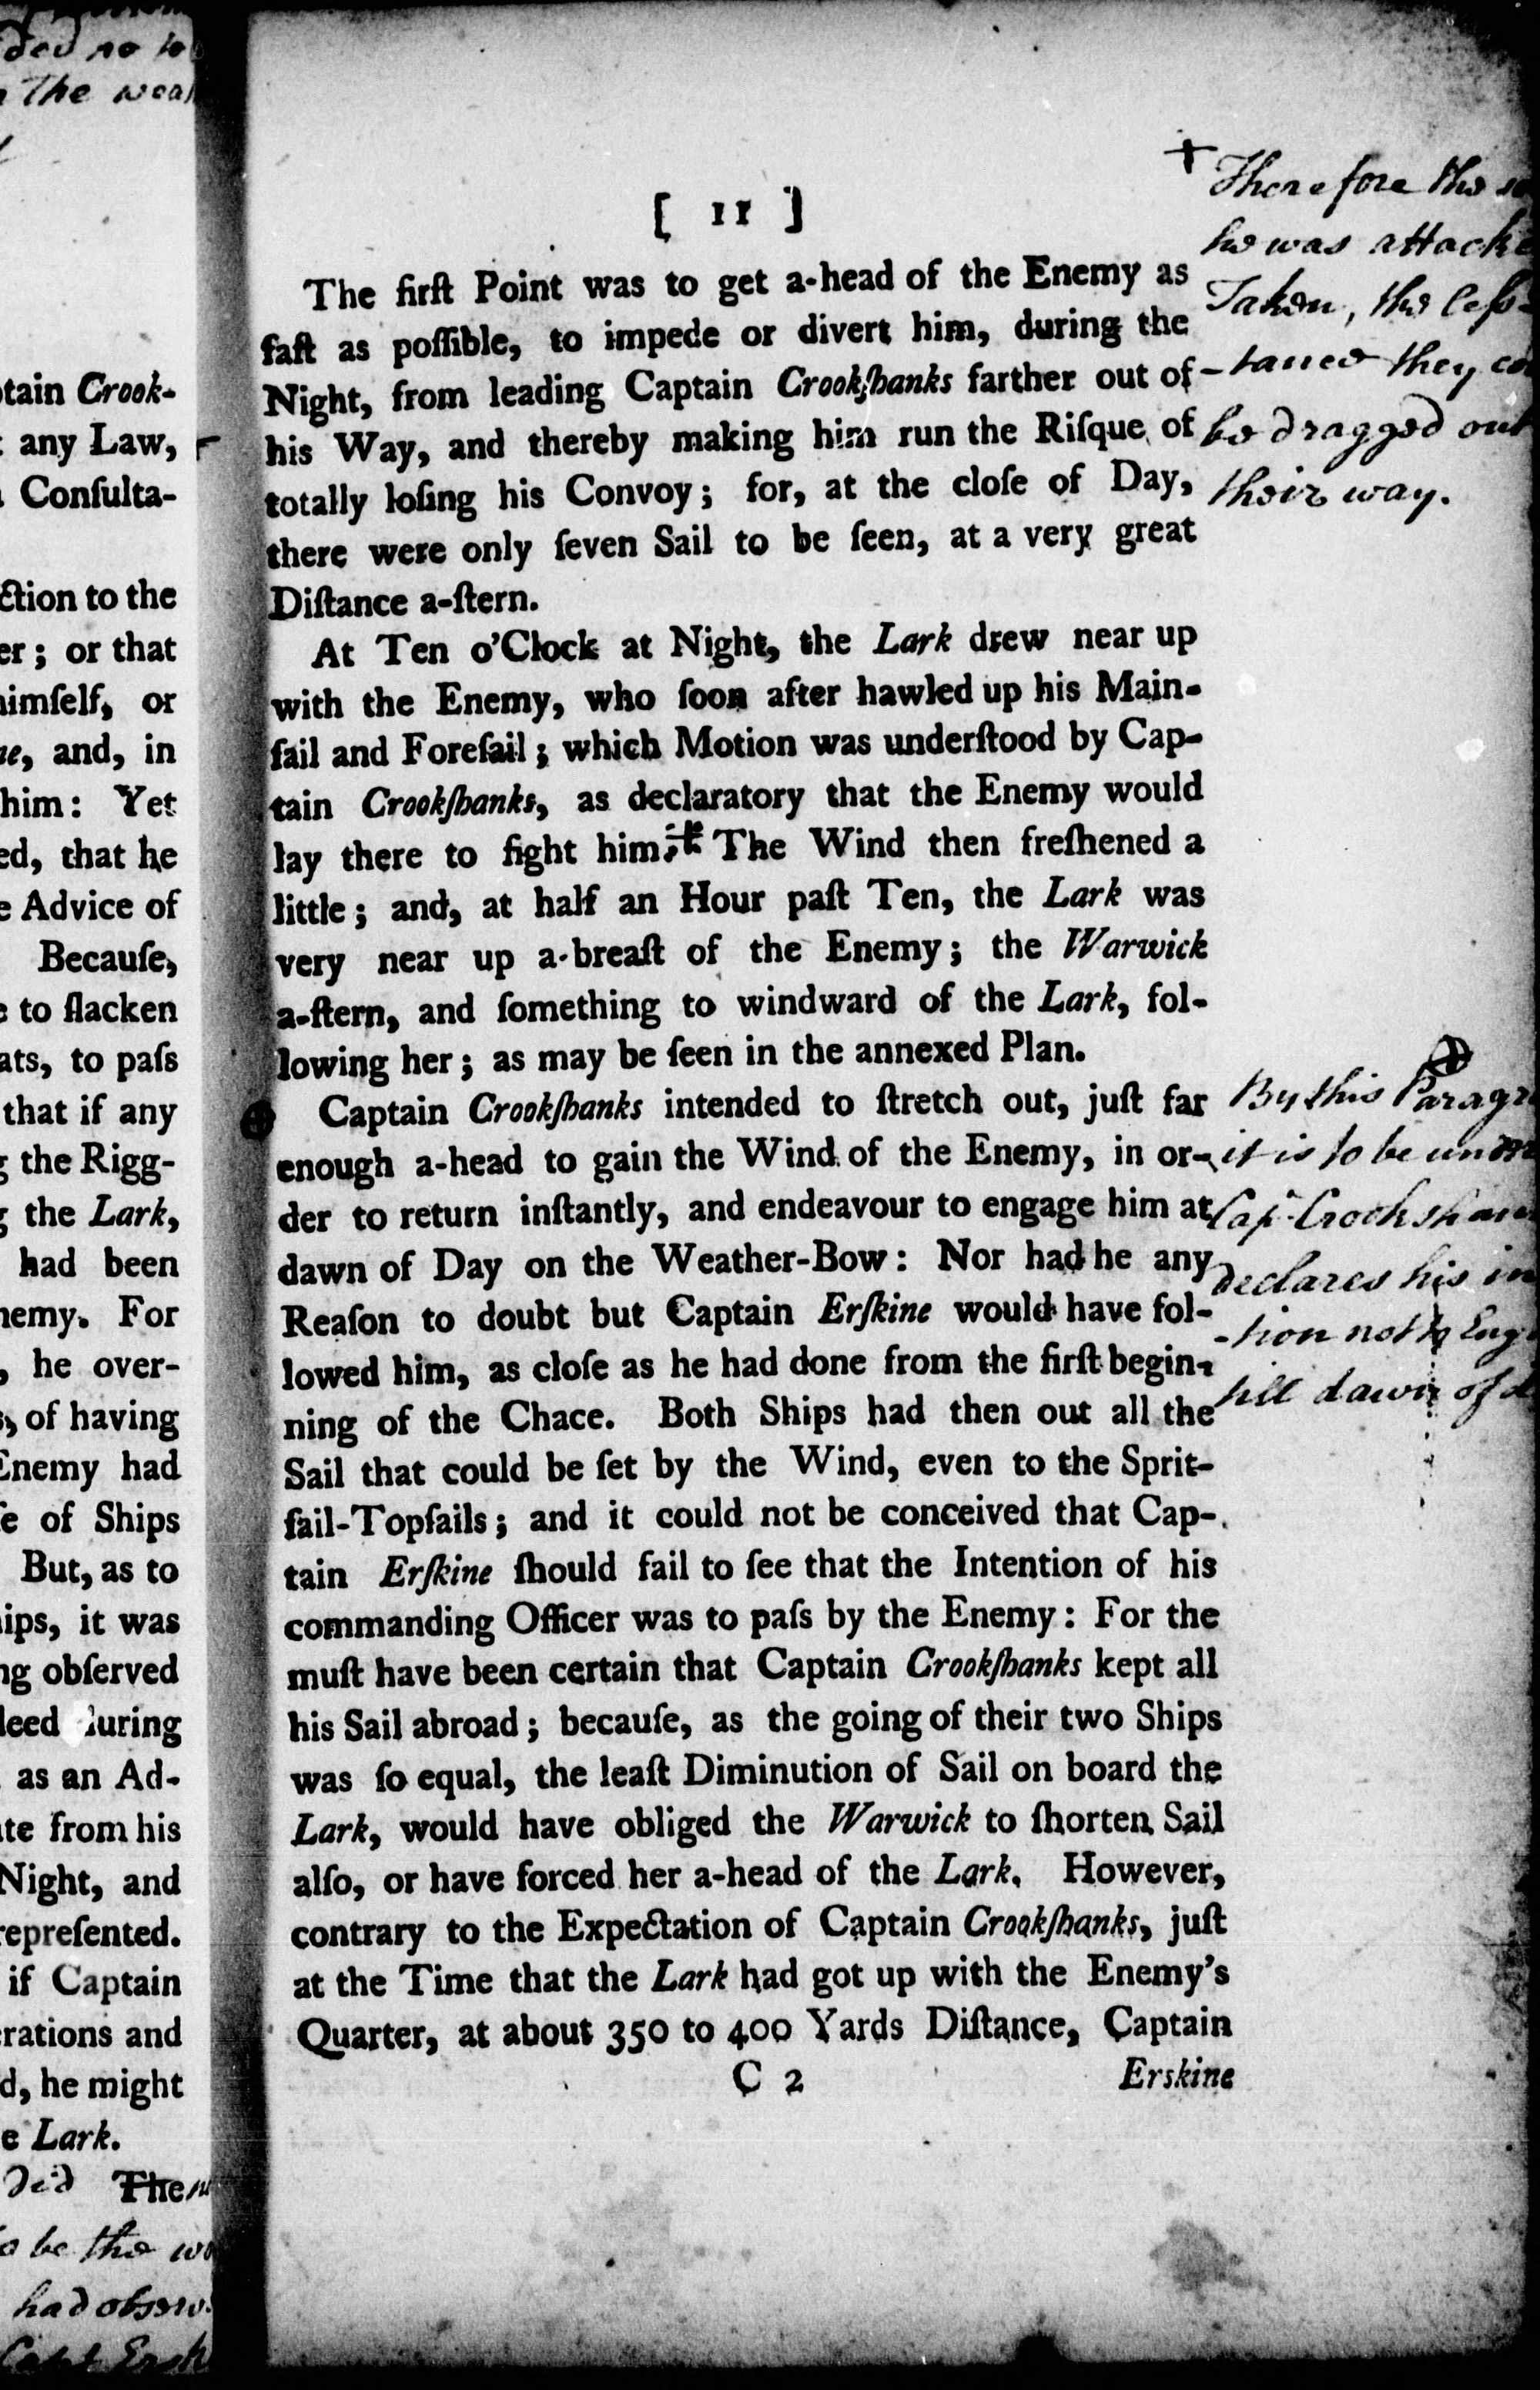 ded no
The
tain Crook-
any Law,
Conſulta-
ction to the
er; or that
himſelf, or
ne, and, in
him: Yet
ed, that he
e Advice of
Becauſe,
to ſlacken
ats, to paſs
that if any
the Rigg-
the Lark,
had been
nemy. For
, he over-
s, of having
Enemy had
ſe of Ships
But, as to
hips, it was
ng obſerved
deed during
as an Ad-
ate from his
Night, and
repreſented.
if Captain
erations and
d, he might
e Lark.
Did The
to be the
had obser
Capt Ersk
[ 11 ]
The firſt Point was to get a-head of the Enemy as
faſt as poſſible, to impede or divert him, during the
Night, from leading Captain Crookſhanks farther out of
his Way, and thereby making him run the Riſque of
totally loſing his Convoy; for, at the cloſe of Day,
there were only ſeven Sail to be ſeen, at a very great
Diſtance a-ſtern.
At Ten o'Clock at Night, the Lark drew near up
with the Enemy, who ſoon after hawled up his Main-
ſail and Foreſail; which Motion was underſtood by Cap-
tain Crookſhanks, as declaratory that the Enemy would
lay there to fight him. The Wind then freſhened a
little; and, at half an Hour paſt Ten, the Lark was
very near up a-breaſt of the Enemy; the Warwick
a-ſtern, and ſomething to windward of the Lark, fol-
lowing her; as may be ſeen in the annexed Plan.
Captain Crookſhanks intended to ſtretch out, juſt far
enough a-head to gain the Wind of the Enemy, in or-
der to return inſtantly, and endeavour to engage him at
dawn of Day on the Weather-Bow: Nor had he any
Reaſon to doubt but Captain Erſkine would have fol-
lowed him, as cloſe as he had done from the firſt begin-
ning of the Chace. Both Ships had then out all the
Sail that could be ſet by the Wind, even to the Sprit-
ſail-Topſails; and it could not be conceived that Cap-
tain Erſkine ſhould fail to ſee that the Intention of his
commanding Officer was to paſs by the Enemy: For the
muſt have been certain that Captain Crookſhanks kept all
his Sail abroad; becauſe, as the going of their two Ships
was ſo equal, the leaſt Diminution of Sail on board the
Lark, would have obliged the Warwick to ſhorten Sail
alſo, or have forced her a-head of the Lark. However,
contrary to the Expectation of Captain Crookſhanks, juſt
at the Time that the Lark had got up with the Enemy's
Quarter, at about 350 to 400 Yards Diſtance, Captain
C 2 Erskine
+ Therefore the
he was attack
Taken, the leſs
-tance they co
be dragged out
their way.
By this Paragr
it is to be under
Capt. Crookshan
declares his in
-tion not to Eng
till dawn of d